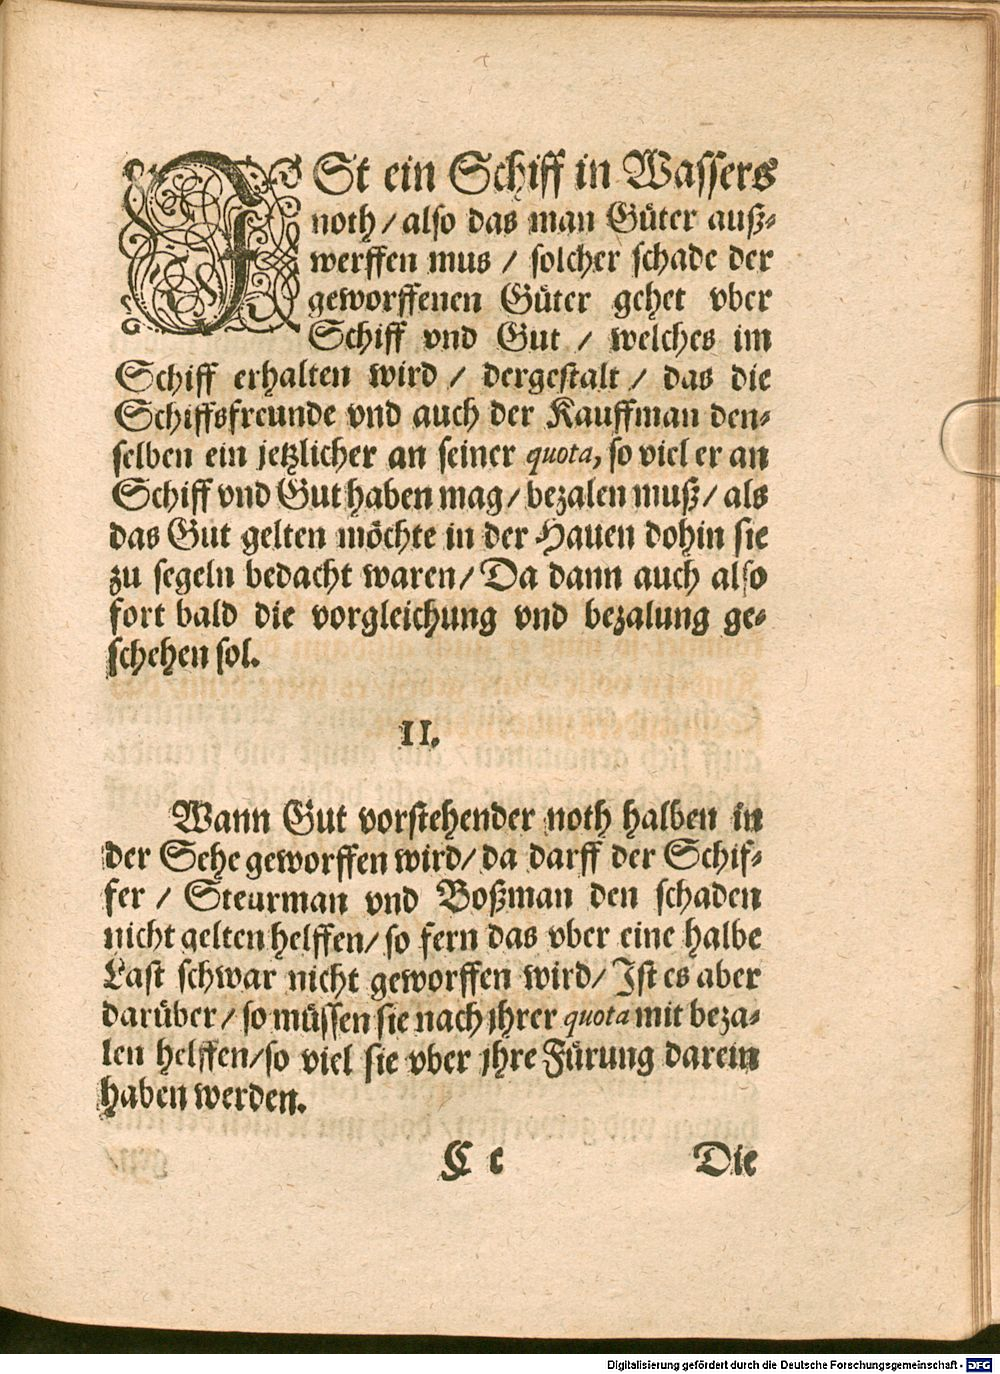 ISt ein Schiff in Wassers
noth / also das man Güter auß⸗
werffen mus / solcher schade der
geworffenen Güter gehet vber
Schiff vnd Gut / welches im
Schiff erhalten wird / dergestalt / das die
Schiffsfreunde vnd auch der Kauffman den⸗
selben ein jetzlicher an seiner quota, so viel er an
Schiff vnd Gut haben mag / bezalen muß / als
das Gut gelten möchte in der Hauen dohin sie
zu segeln bedacht waren / Da dann auch also
fort bald die vorgleichung vnd bezalung ge⸗
schehen sol.
II.
Wann Gut vorstehender noth halben in
der Sehe geworffen wird / da darff der Schif⸗
fer / Steurman vnd Boßman den schaden
nicht gelten helffen / so fern das vber eine halbe
Last schwar nicht geworffen wird / Ist es aber
darüber / so müssen sie nach jhrer quota mit beza⸗
len helffen / so viel sie vber jhre Fürung darein
haben werden.
C c Die
Digitalisierung gefördert durch die Deutsche Forschungsgemeinschaft - DFG